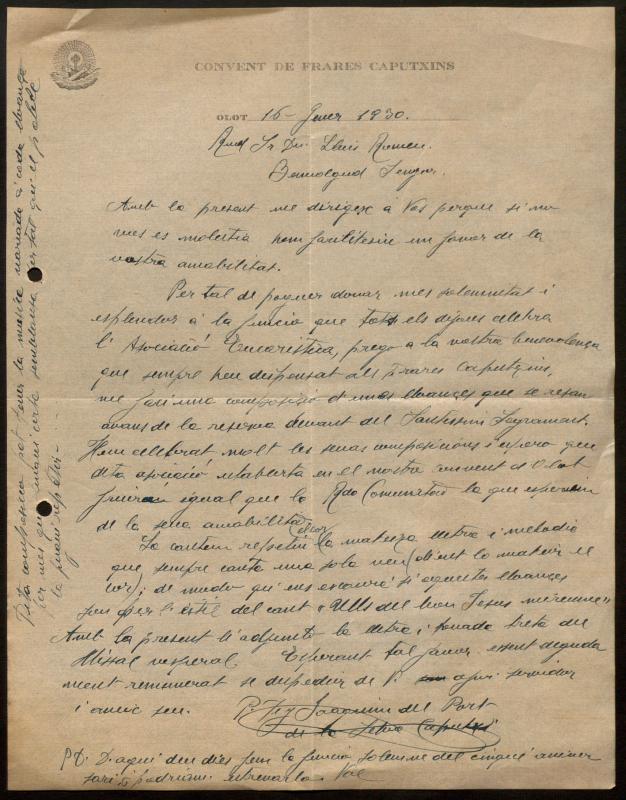 CONVENT DE FRARES CAPUTXINS
OLOT 16 - Gener 1930.
Rnd Sr Dn. Lluis Romeu.
Benvolgud Senyor.
Amb la present me dirigesc à Vos perque si no
mes es molestia hem facilitesin un favor de la
vostra amabilitat.
Per tal de poguer donar mes solemnitat i
esplendor à la funcio que tots els dijous celebra
l'Asociació Eucaristica, prego a la vostra benevolença
que sempre heu dispensat als Frares Caputxins,
me faci una composició d'unas alavançes que se resan
avans de la reserva devant del Santissim Sagrament.
Hem celebrat molt les seuas composicions i espero que
dita asociació establerta en el nostre convent d'Olot
igual que la Rda Comunitat lo que esperem
de la seva amabilitat.
La cantem repetin el cor la mateixa lletra i melodia
que sempre canta una sola veu (dient lo mateix el
cor); de modo que ens escauria si aquestes alavançes
son per l'estil del cant "Ulls del bon Jesus mireume"
Amb la present li adjunto la lletra i tonada treta del
Missal vesperal. Esperant tal favor essent deguda
ment remunerat se despedeix de V. afm servidor
i amic seu.
P. Fra Joaquim del Port
de la Selva Caputxi
P.D. D'aqui deu dies fem la funcio solemne del cinquè aniver
sari i podriam estrenarla. Val
Dita composicio pot tener la musica variada à cada alavança
per mes que tinguin certa semblansa per tal que el poble
la pugui repetir -